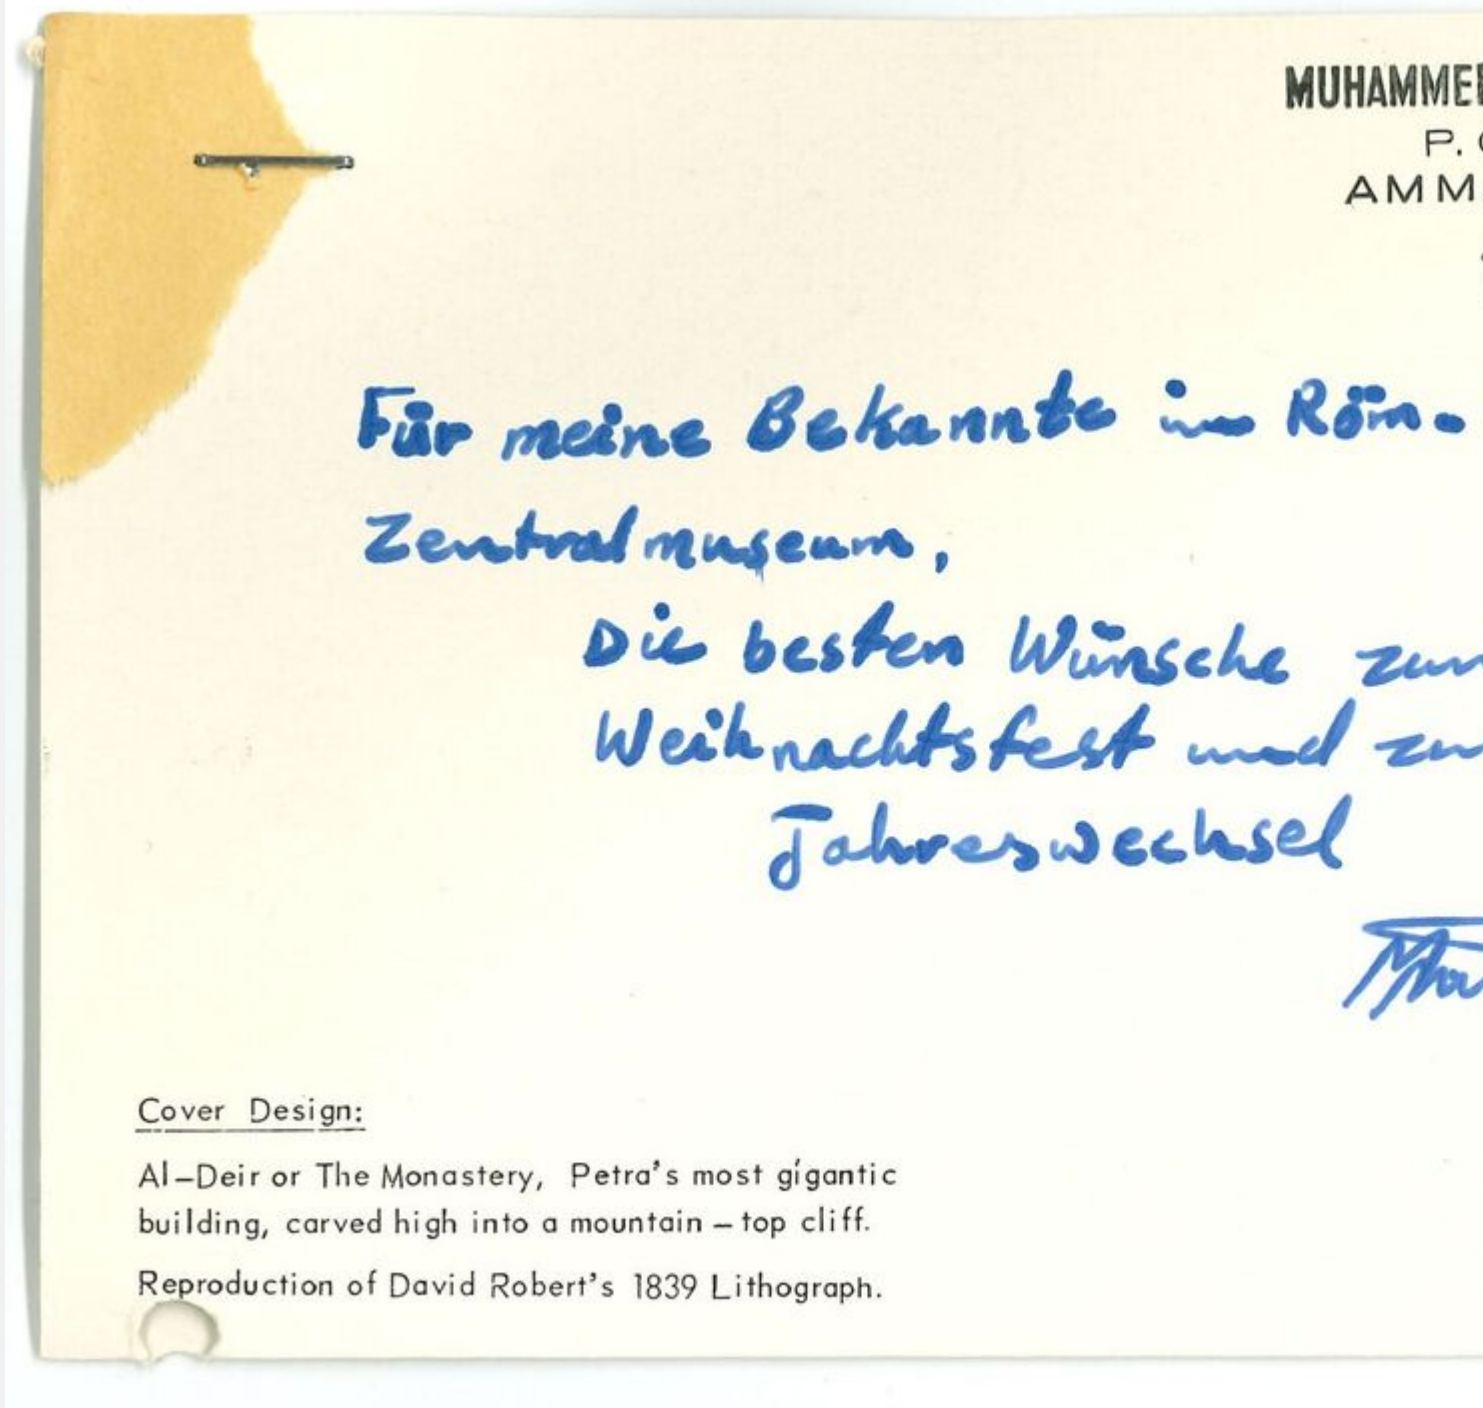 MUHAMME
P.
AMM
Für meine Bekannte im Röm.
Zentralmuseum,
Die besten Wünsche zum
Weihnachtsfest und zu
Jahreswechsel
Cover Design:
Al-Deir or The Monastery, Petra's most gigantic
building, carved high into a mountain – top cliff.
Reproduction of David Robert's 1839 Lithograph.